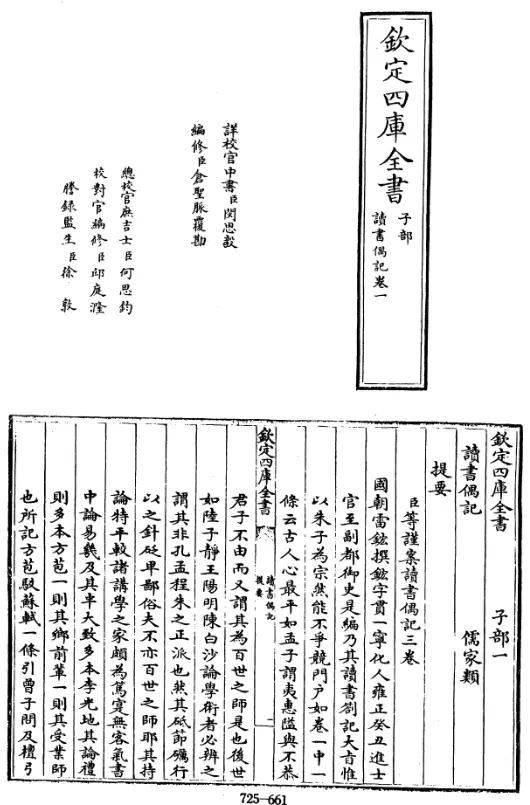 欽定四庫全書
子部
讀書偶記卷一
詳校官中書臣閔思誠
編修臣倉聖脈覆勘
總校官庶吉士臣何思鈞
校對官編修臣邱庭漋
謄錄監生臣徐敦
欽定四庫全書 子部一
讀書偶記 儒家類
提要
臣等謹案讀書偶記三卷
國朝雷鋐撰鋐字貫一寧化人雍正癸丑進士
官至副都御史是編乃其讀書劄記大旨惟
以朱子為宗然能不爭競門户如卷一中一
條云古人心最平如孟子謂夷惠隘與不恭
欽定四庫全書
讀書偶記
提要
一
君子不由而又謂其為百世之師是也後世
如陸子靜王陽明陳白沙論學術者必辨之
謂其非孔孟程朱之正派也然其砥節礪行
以之針砭卑鄙俗夫不亦百世之師耶其持
論特平較諸講學之家頗為篤定無客氣書
中論易幾及其半大致多本李光地其論禮
則多本方苞一則其鄉前輩一則其受業師
也所記方苞駁蘇軾一條引曾子問及檀弓
725-661